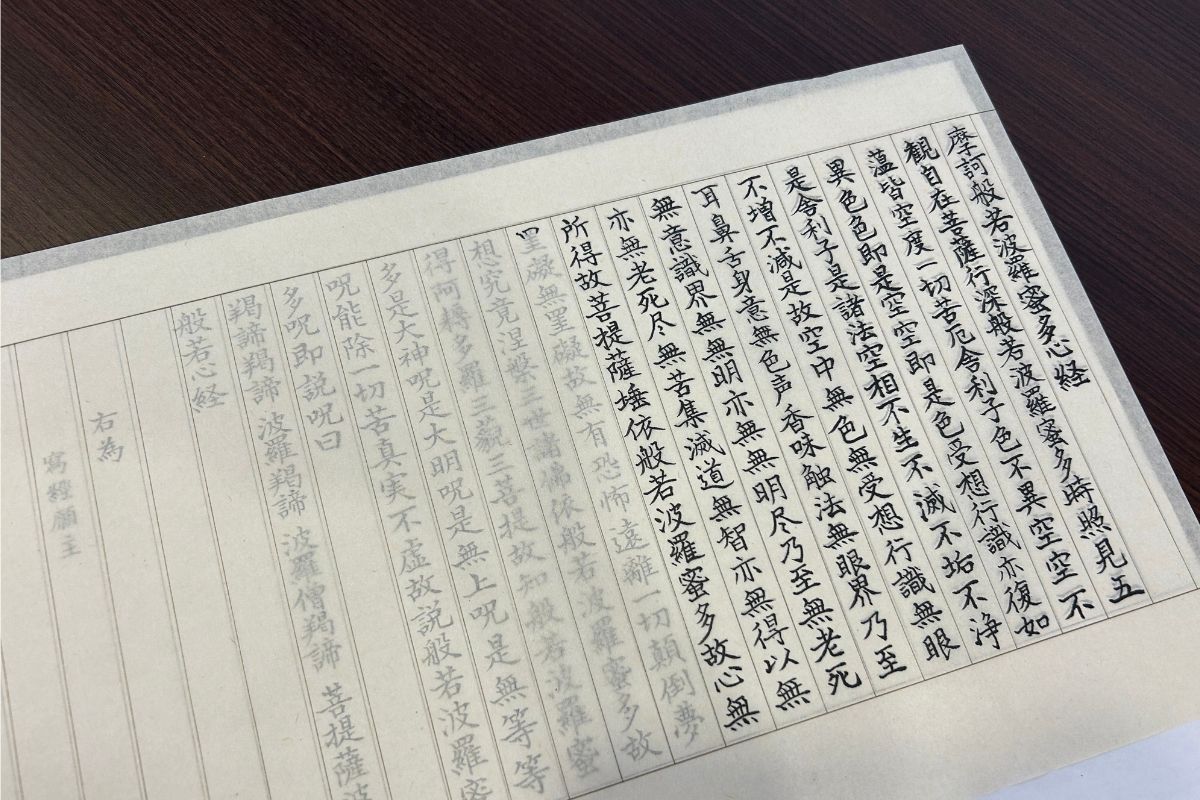 摩訶般若波羅蜜多心経
観自在菩薩行深般若波羅蜜多時照見五
蘊皆空度一切苦厄舎利子色不異空空不
異色色即是空空即是色受想行識亦復如
是舎利子是諸法空相不生不滅不垢不浄
不増不減是故空中無色無受想行識無眼
耳鼻舌身意無色声香味触法無眼界乃至
無意識界無無明亦無無明尽乃至無老死
亦無老死尽無苦集滅道無智亦無得以無
所得故菩提薩埵依般若波羅蜜多故心無
罣礙無罣礙故無有恐怖遠離一切顛倒夢
想究竟涅槃三世諸佛依般若波羅蜜多故
得阿耨多羅三藐三菩提故知般若波羅蜜
多是大神呪是大明呪是無上呪是無等等
呪能除一切苦真実不虚故説般若波羅蜜
多呪即説呪曰
羯諦羯諦 波羅羯諦 波羅僧羯諦 菩提薩
般若心経
右為
寫經願主